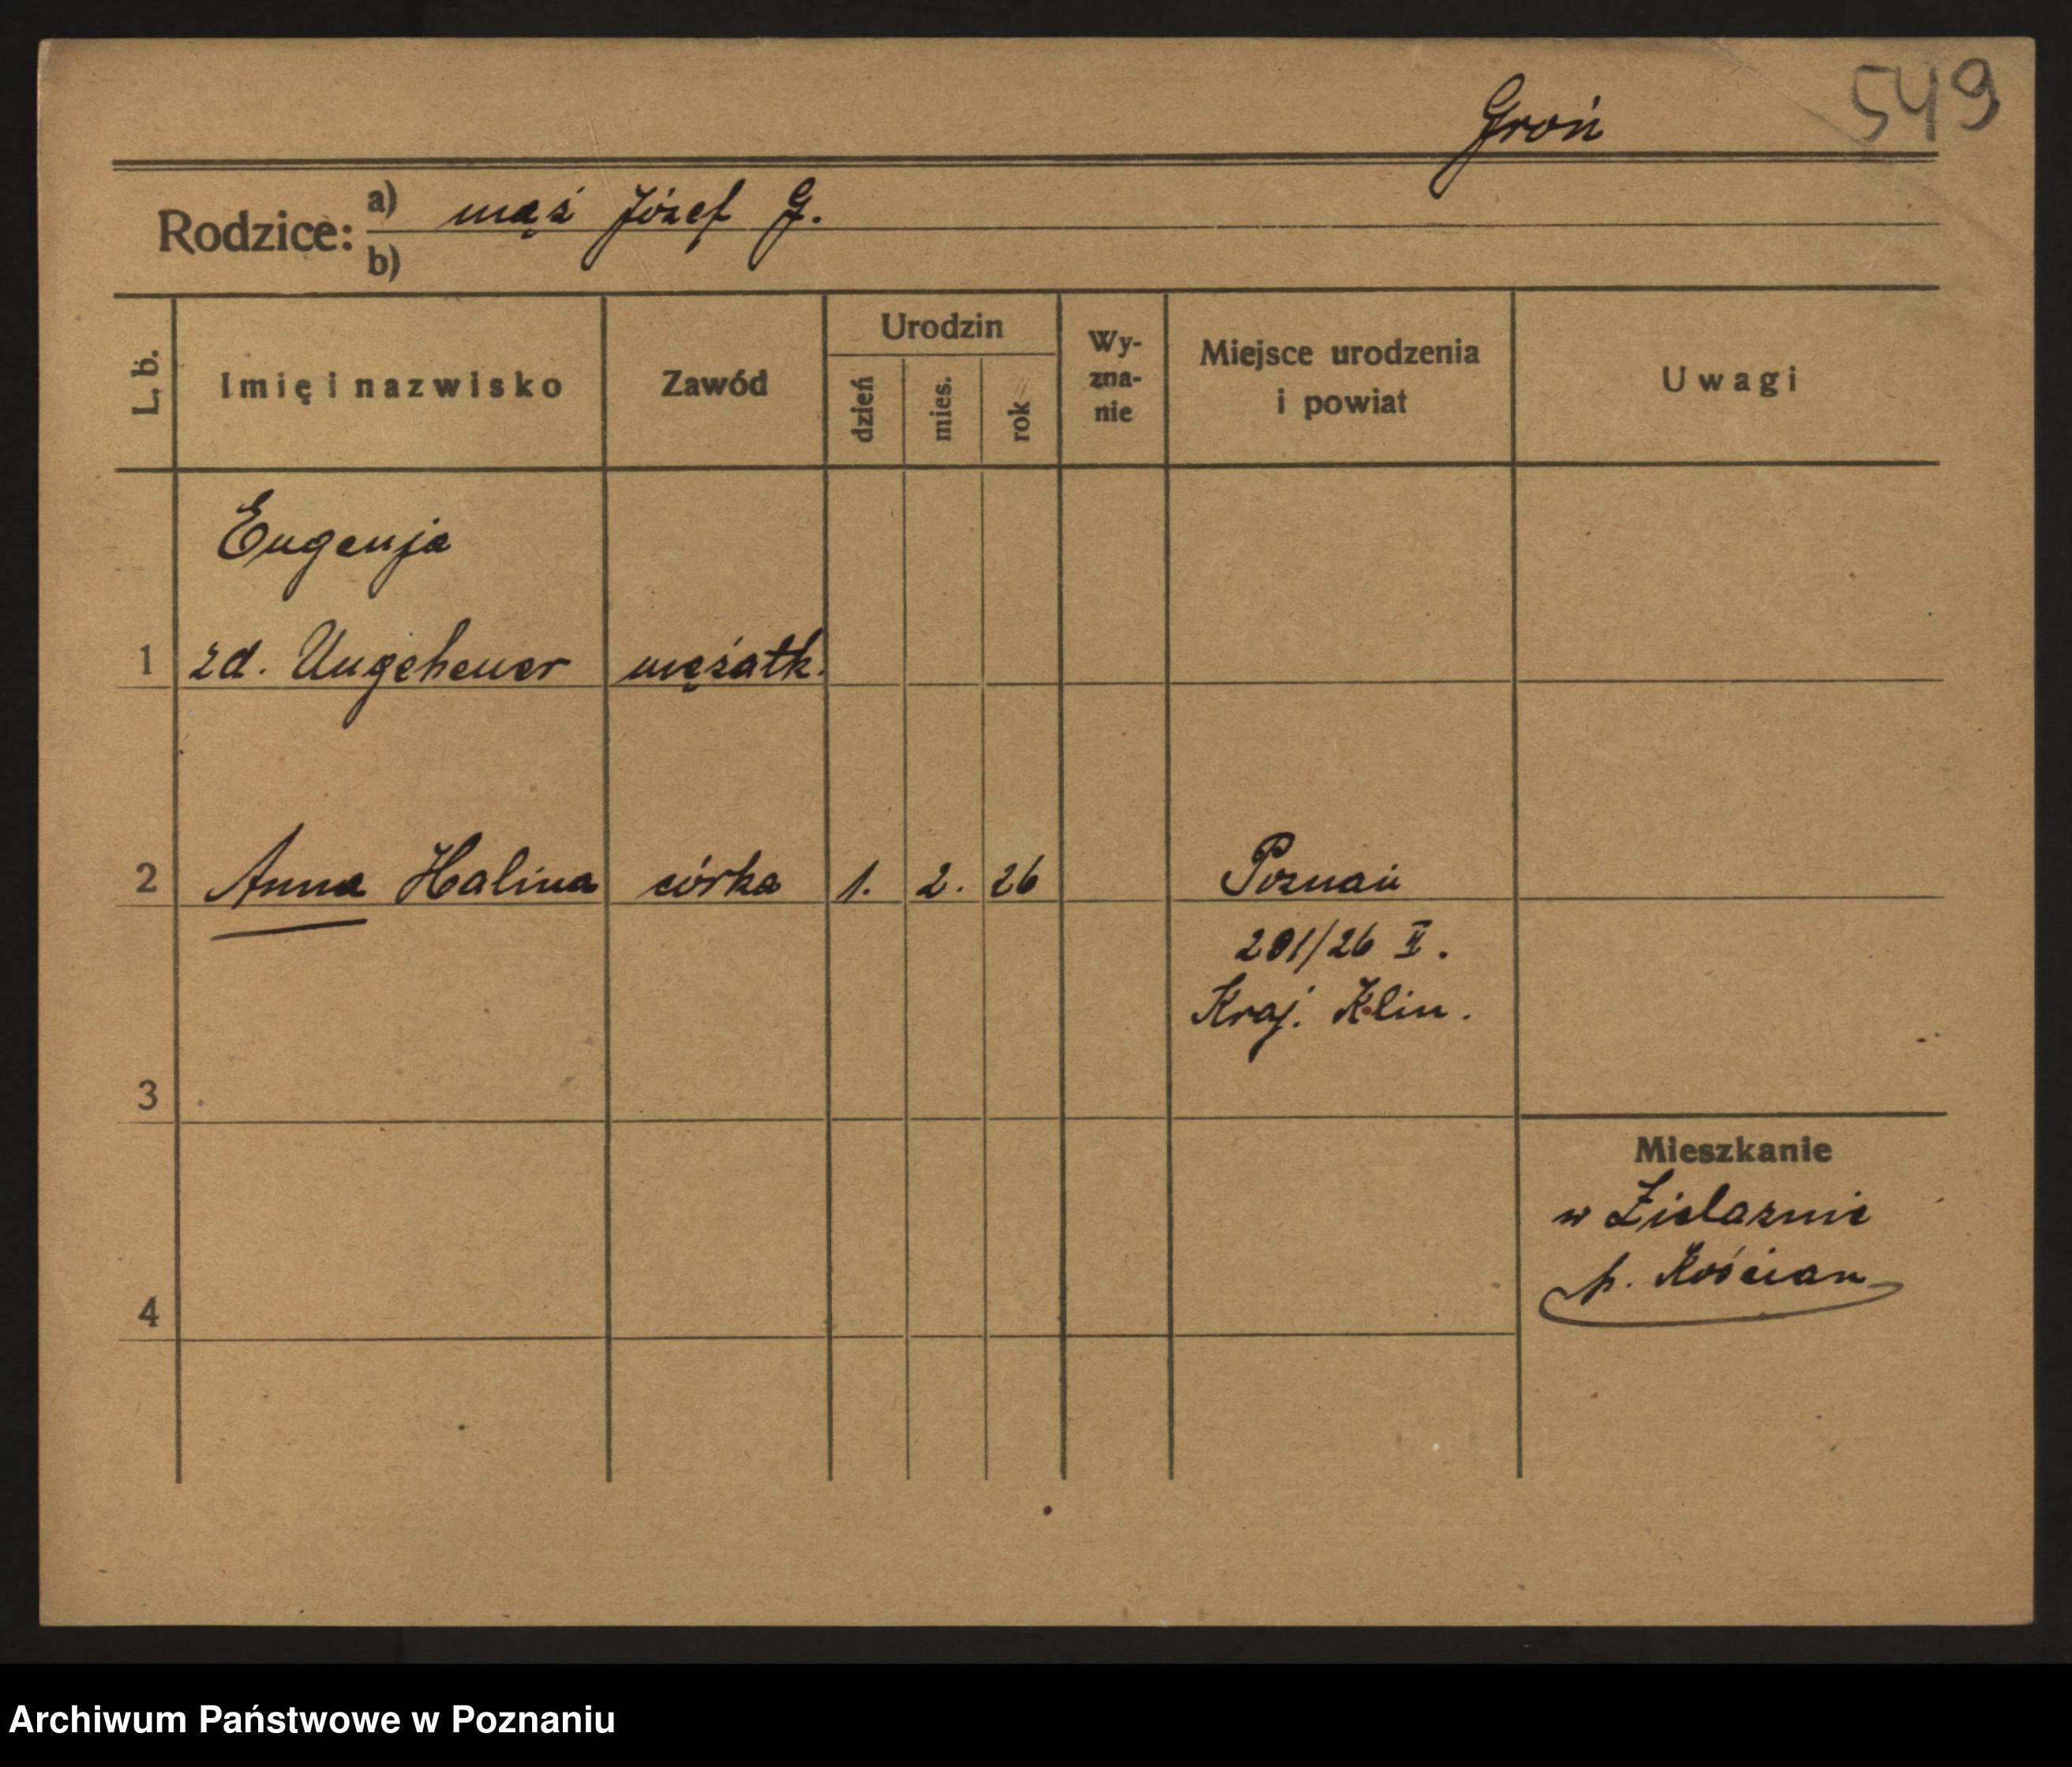 549
Groń
Rodzice: a) mąż Józef G.
b)
L. b.
Imię i nazwisko
Zawód
Urodzin
dzień
mies.
rok
Wy-
zna-
nie
Miejsce urodzenia
i powiat
Uwagi
Eugenja
1 zd. Ungeheuer mężatk.
2 Anna Halina córka 1. 2. 26 Poznań
201/26 II.
Kraj. Klin.
3
Mieszkanie
w Żielaznie
p. Kościan
4
Archiwum Państwowe w Poznaniu